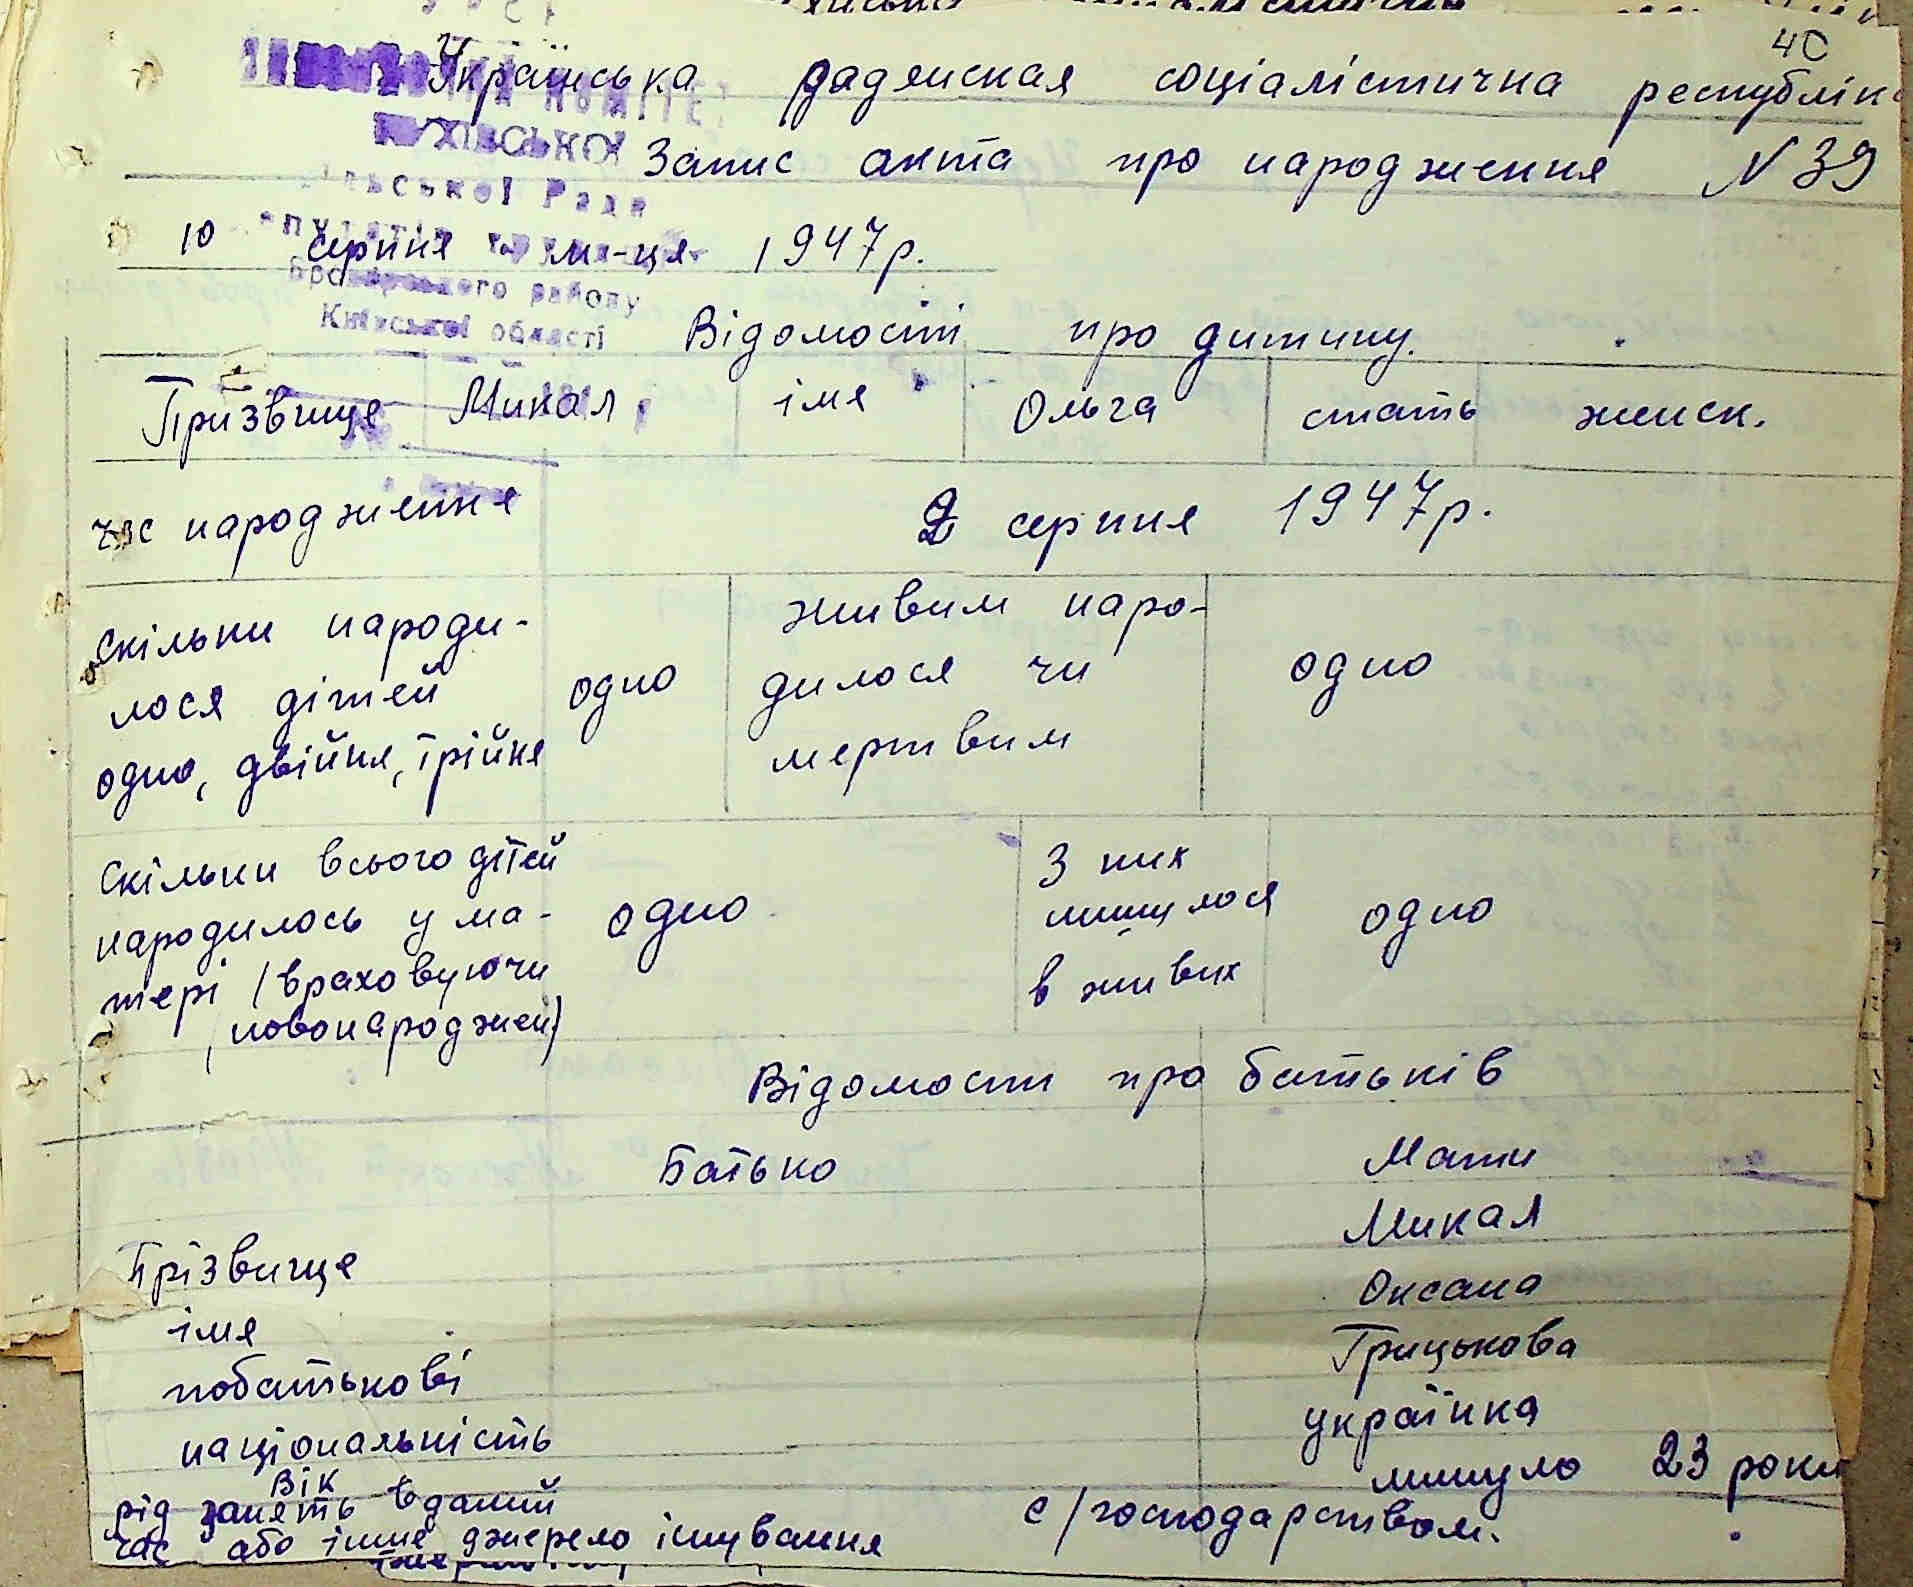 40
Українська радянская соціалістична республік
Запис акта про народження N 39
ХІВСЬКОЇ
Сільської Ради
10 серпня м-ця 1947р.
Броварського району
Київської області
Відомості про дитину.
Прізвище Микал імя Ольга стать женск.
час народження 2 серпня 1947р.
Скільки народи-
лося дітей
одно, двійня, трійня
одно
живим наро-
дилося чи
мертвим
одно
Скільки всього дітей
народилось у ма-
тері (враховуючи
(новонароджен)
одно
З них
лишилося
в живих
одно
Відомости про батьків
Батько Мати
Прізвище Микал
імя Оксана
побатькові Грицькова
національність українка
Вік минуло 23 роки
рід занять в даний с/господарством.
час або інше джерело існування